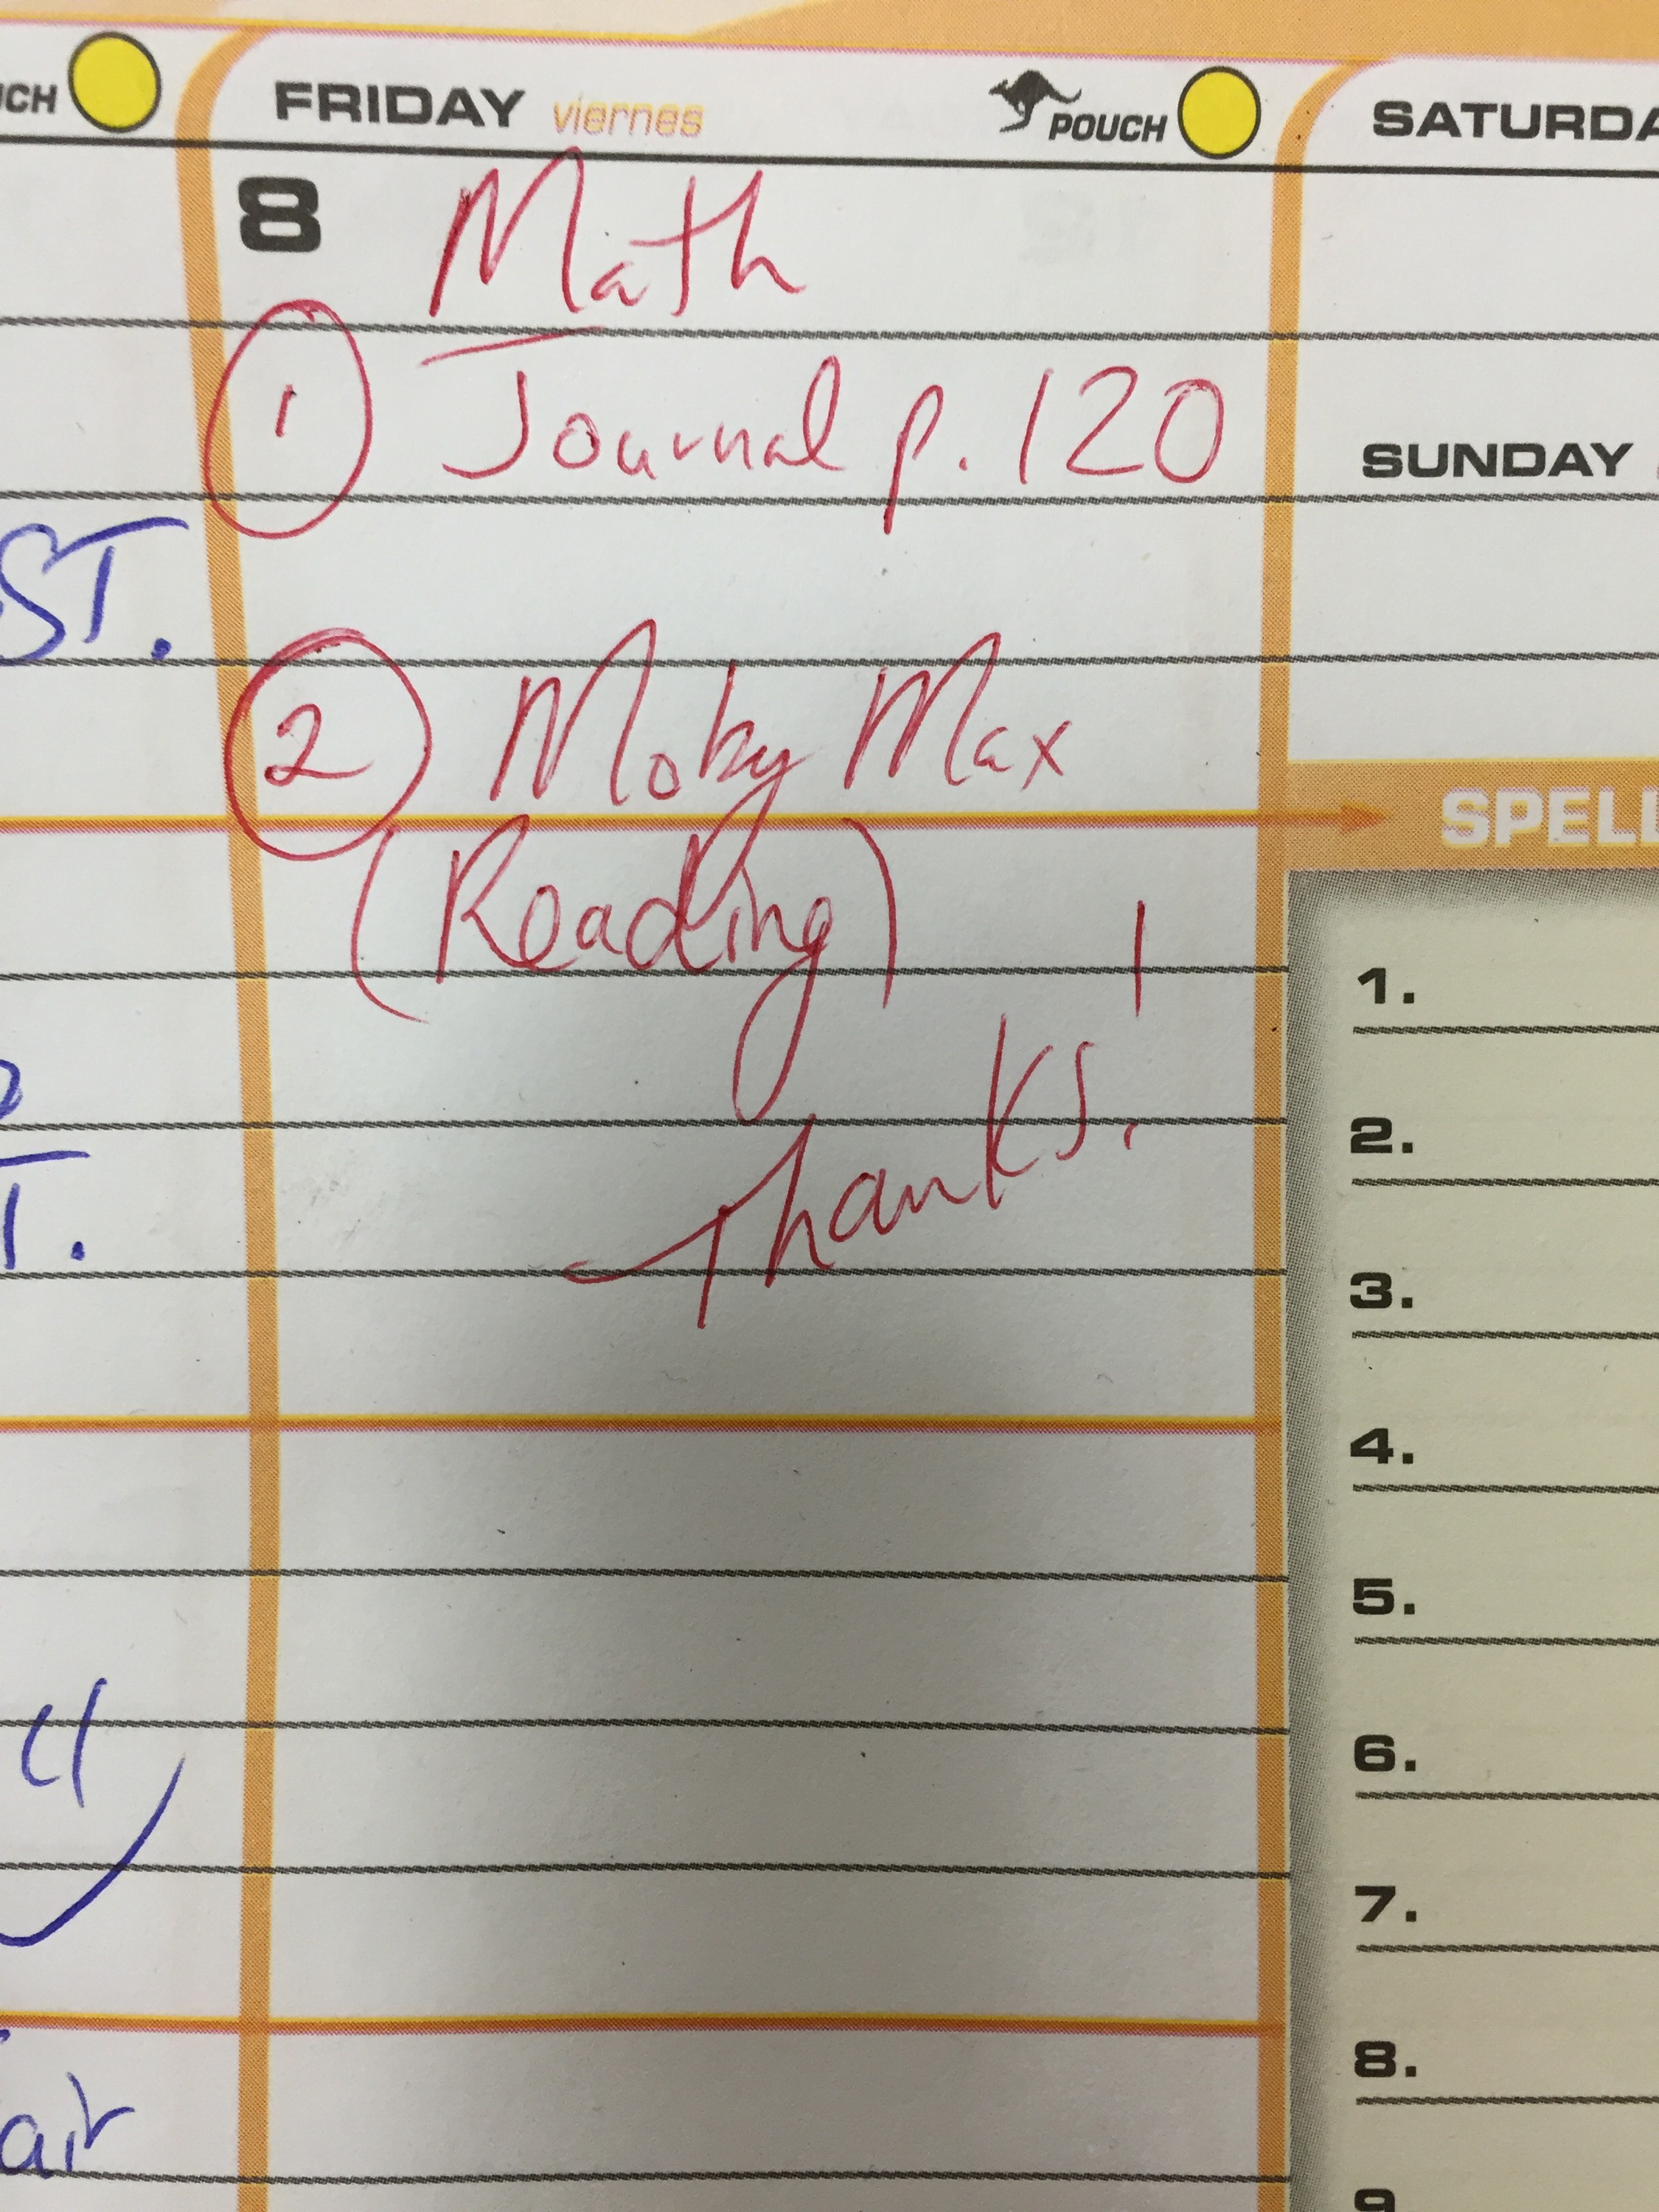 FRIDAY viernes
POUCH
SATURDA
8
Math
1 Journal p. 120
2 Moby Max
(Reading)
Thanks!
SUNDAY
SPELL
1.
2.
3.
4.
5.
6.
7.
8.
9
UCH
ST.
T.
air